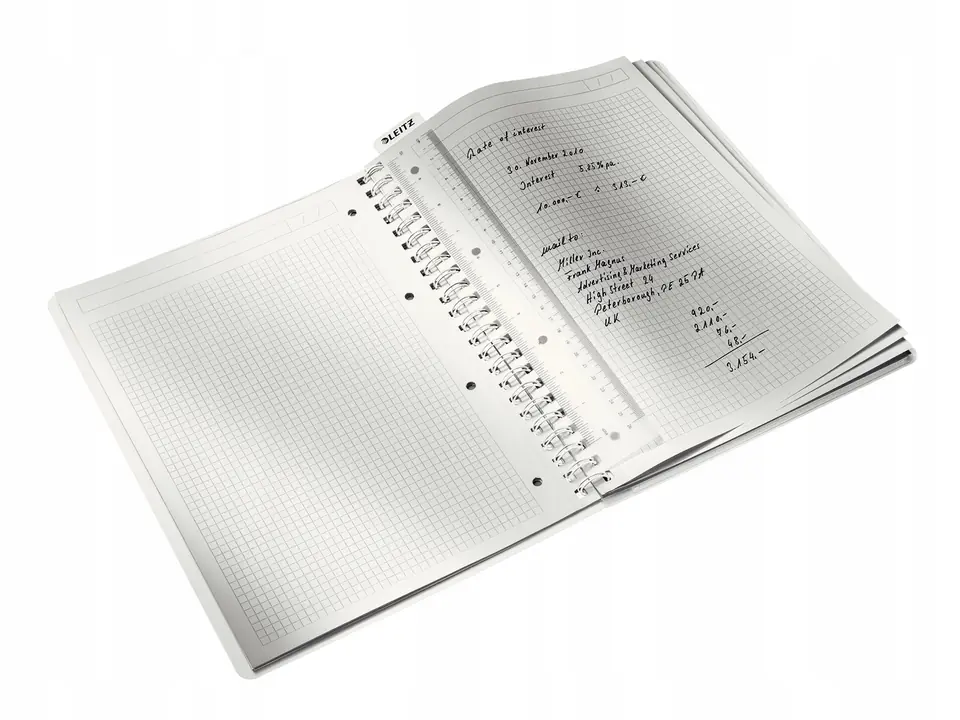 LEITZ
Rate of interest
30. November 2010
Interest 5.85% pa.
10.000,- € ÷ 315,- €
mail to:
Miller Inc.
Frank Magnus
Advertising & Marketing Services
High Street 24
Peterborough, PE 25 PA
UK
920,-
2.110,-
76,-
48,-
3.154,-